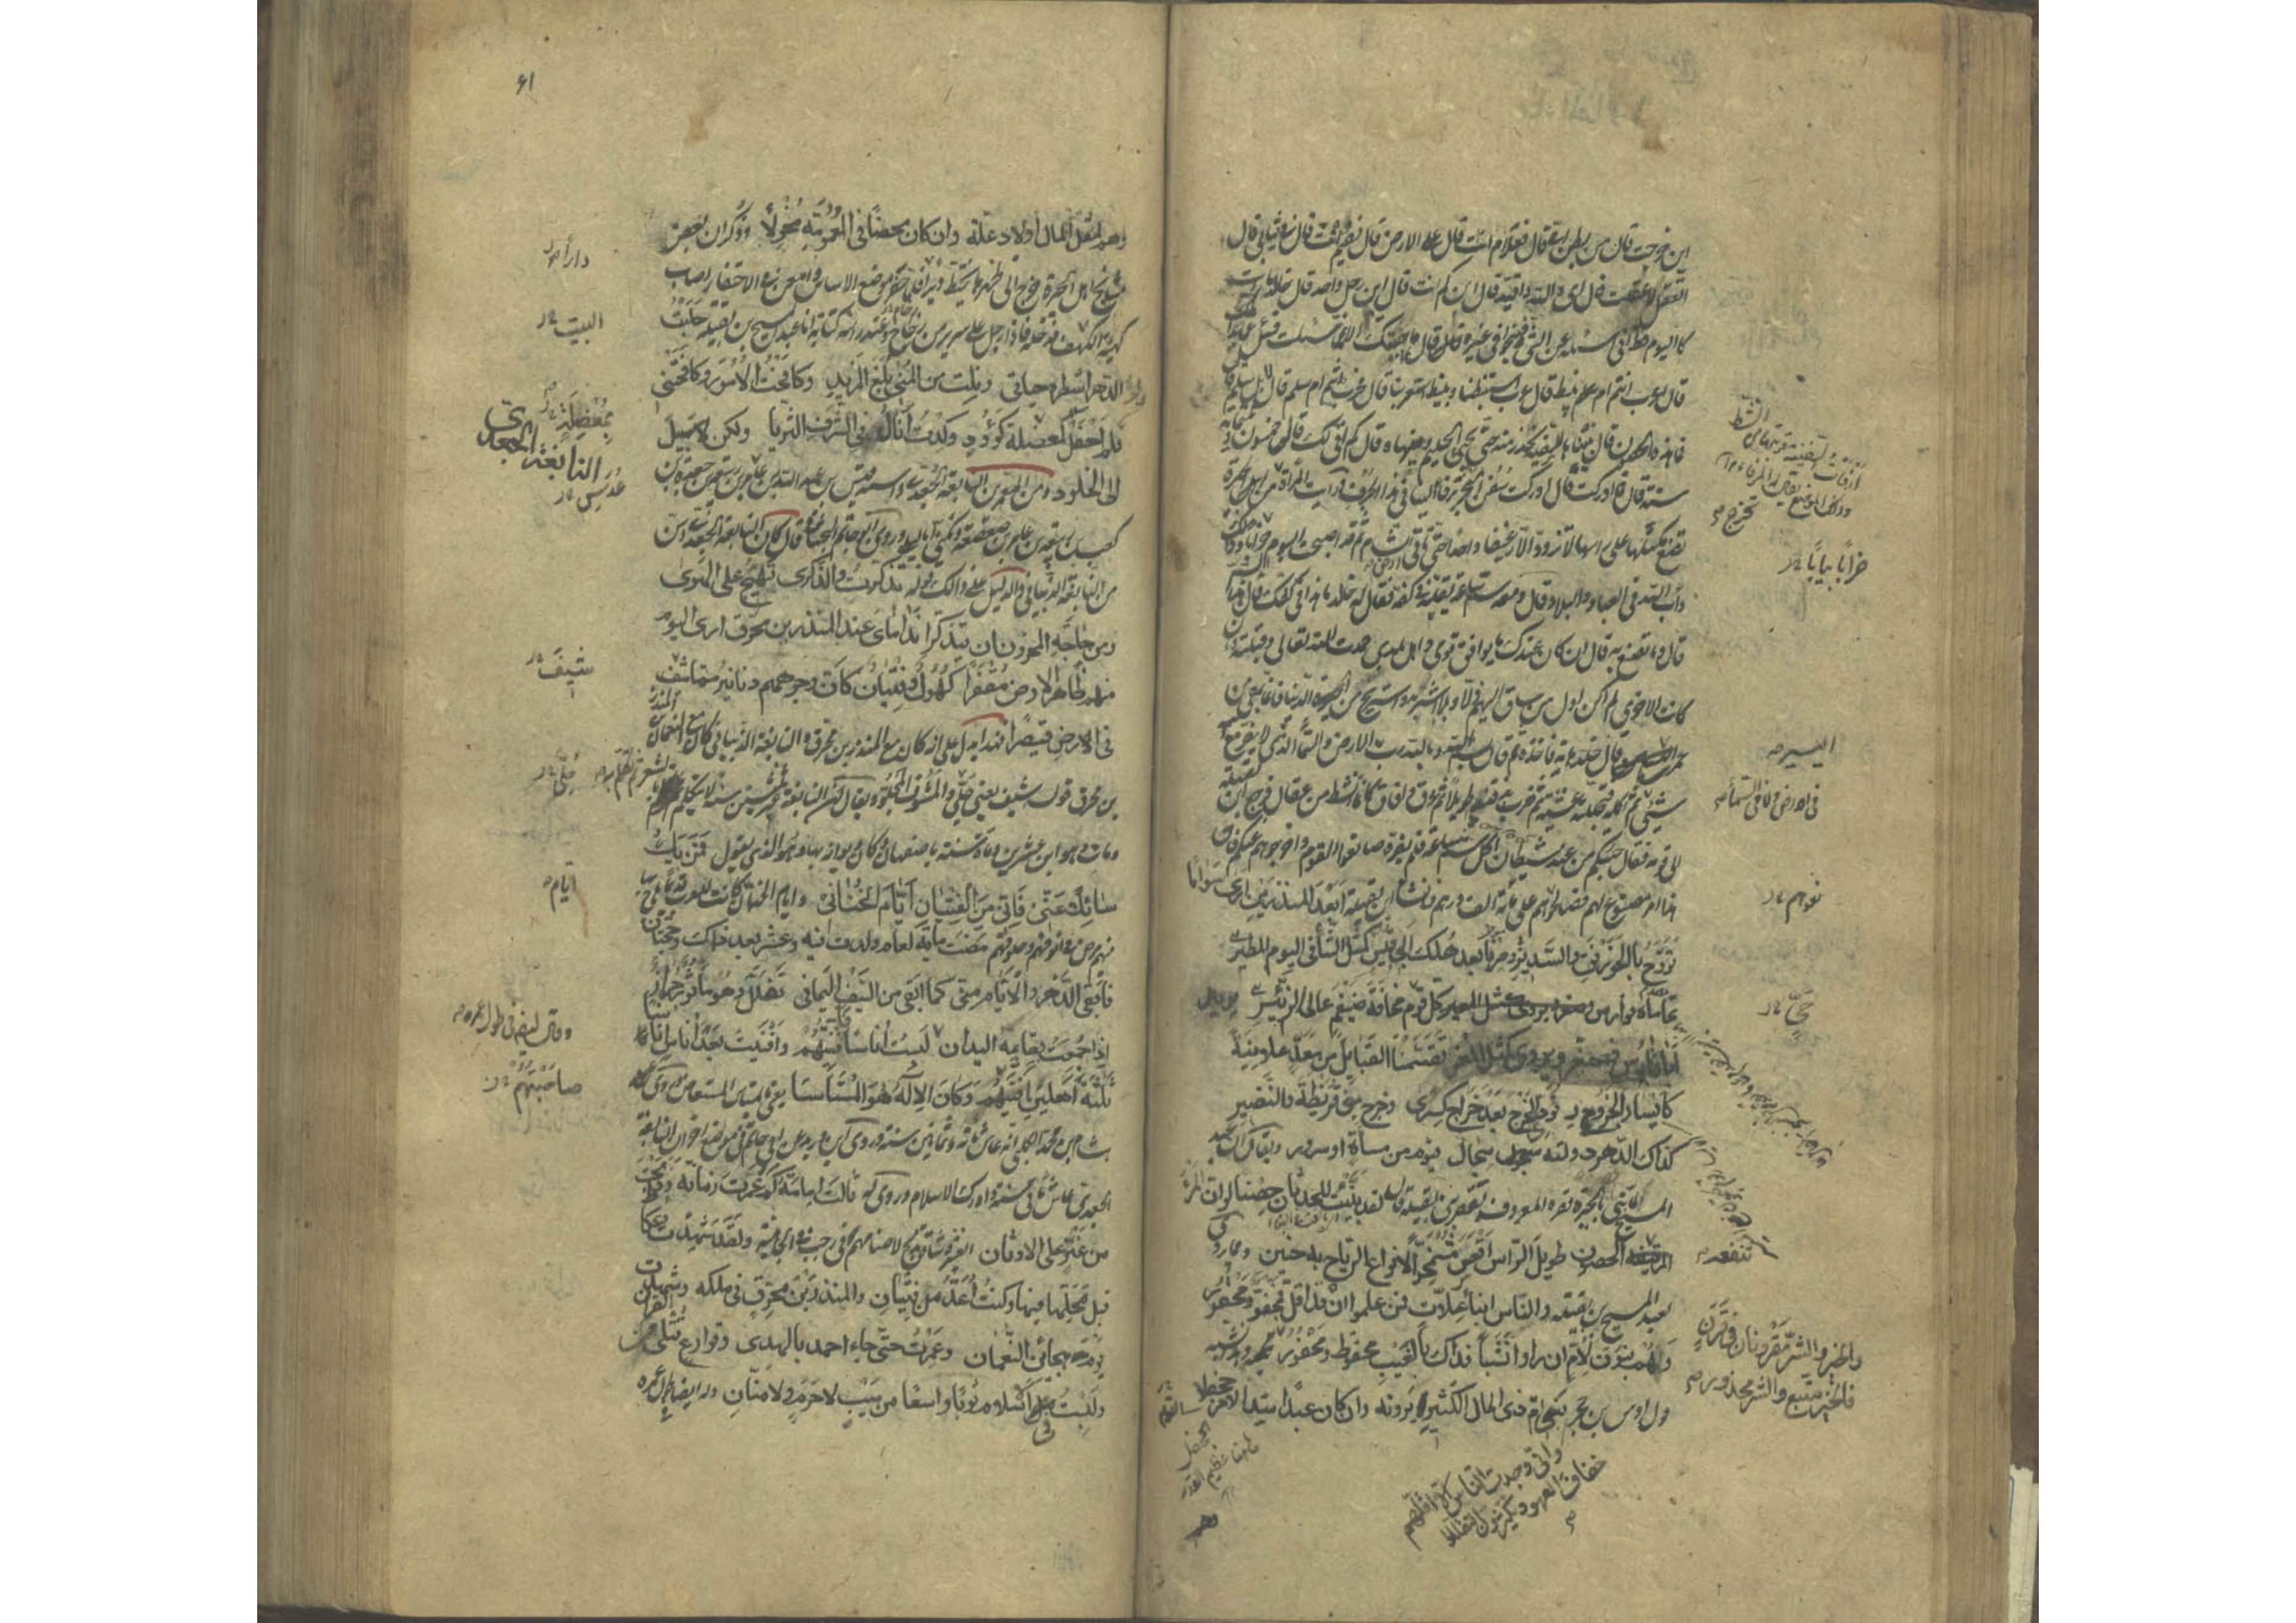 اين خرجت قال من بطن امي قال فعلام انت قال على الارض قال ففيم انت قال في ثيابي قال
اتعقل لا عقلت قال اي والله واقيد قال ابن كم انت قال ابن رجل واحد قال خالد ما رايت
كاليوم قط اني اسئله عن الشئ وينحو في غيره قال ما اجبتك الا عما سئلت فسئل عما بدا لك
قال اعرب انتم ام نبيط قال عرب استنبطنا ونبيط استعربنا قال فحرب انتم ام سلم قال بل سلم قال
فما هذه الحصون قال بنيناها للسفيه نحذر منه حتى يجئ الحليم ينهاه قال كم اتى لك قال خمسون وثلثمائة
سنة قال فما ادركت قال ادركت سفن البحر ترفا الينا في هذا الجرف ورايت المراة من اهل الحيرة
تضع مكتلها على راسها لا تزود الا رغيفا واحدا حتى تاتي الشام ثم قد اصبحت اليوم خرابا وذلك
داب الله في العباد والبلاد قال ومعه سم ساعة يقلبه في كفه فقال له خالد ما هذا في كفك قال هذا السم
قال وما تصنع به قال ان كان عندك ما يوافق قومي واهل بلدي حمدت الله تعالى وقبلته وان
كانت الاخرى لم اكن اول من ساق اليهم ذلا وبلاء اشربه واستريح من الحيوة الدنيا فانما بقي من
عمري قال خالد هاته فاخذه ثم قال بسم الله وبالله رب الارض والسماء الذي لا يضر مع اسمه
شيئ ثم اكله فتجللته غشية ثم ضرب بذقنه طويلا ثم عرق وافاق كانما نشط من عقال فرجع ابن بقيلة
الى قومه فقال جئتكم من عند شيطان اكل سم ساعة فلم يضره صانعوا القوم واخرجوهم عنكم فان
هذا امر مصنوع لهم فصالحوهم على مائة الف درهم وانشا ابن بقيلة ابعد المنذرين ارى سواما
تروح بالخورنق والسدير وبعد هلك ابي قبيس كمثل الشاء في اليوم المطير
تحاماه فوارس كل قوم مخافة ضيغم عالي الزئير
تقسمنا القبايل من معد علانية
كايسار الجزور نودي الخرج بعد خراج كسرى وخرج بني قريظة والنضير
كذاك الدهر دولته سجال فيوم من مساة او سرور ويقال ان عبد
المسيح لما بنى بالحيرة قصره المعروف بقصر بني بقيلة قال لقد بنيت للحدثان حصنا لو ان المرء
تنفعه الحصون طويل الراس اقعس مشمخرا لانواع الرياح به حنين ومما روي
لعبد المسيح بن بقيلة والناس ابناء علات فمن علموا ان قد اقل فمجفو ومحقور
وهم بنون لام ان راوا نشبا فذاك بالغيب محفوظ ومخفور وهذا يشبه
قول اوس بن حجر بني ام ذي المال الكثير يرونه وان كان عبدا سيد الامر جحفلا
ارفات السفينة قربتها من الشط
وذلك الموضع يقال له المرفا
تخرج
خرابا يبابا
اليسير
في الارض ولا في السماء
نعرفهم
حي
تنفعه
والخير والشر مقرونان في قرن
فالخير متبع والشر محذور
الجحفل
هاهنا عظيم القدر
واني وجدت الناس الا اقلهم
خفاف العهود يكثرون التنقلا
وهم
٤١
وهم لمقل المال اولاد علة وان كان محضا في العمومة مخولا وذكر ان بعض
مشايخ اهل الحيرة خرج الى ظهرها يختط ديرا فلما حفر موضع الاساس وامعن في الاحتفار اصاب
كهيئة الكهف فدخله فاذا رجل على سرير من رخام وعند راسه كتابة انا عبد المسيح بن بقيلة حلبت
الدهر اشطره حياتي ونلت من المنى بلغ المزيد وكافحت الامور وكافحتني
فلم احفل لمعضلة كؤود وكدت انال في الشرف الثريا ولكن لا سبيل
الى الخلود ومن المعمرين النابغة الجعدي واسمه قيس بن عبد الله بن عدس بن ربيعة بن جعدة بن
كعب بن ربيعة بن عامر بن صعصعة ويكنى ابا ليلى وروى ابو حاتم السجستاني قال كان النابغة الجعدي اسن
من النابغة الذبياني والدليل على ذلك قوله تذكرت والذكرى تهيج على الهوى
ومن حاجة المحزون ان يتذكرا نداماي عند المنذر بن محرق ارى اليوم
منهم ظاهر الارض مقفرا كهول وفتيان كان وجوههم دنانير مما شيف
في الارض قيصرا فهذا يدل على انه كان مع المنذر بن محرق والنابغة الذبياني كان مع النعمان بن المنذر
بن محرق قوله شيف يعني جلي والمشوف المجلو ويقال ان النابغة غبر ثلثين سنة لا يتكلم
ومات وهو ابن عشرين ومائة سنة باصفهان وكان ديوانه بها وهو الذي يقول فمن يك
سائلا عني فاني من الفتيان ايام الخنان وايام الخنان كانت للعرب قديما هاج بها
فيهم مرض في انوفهم وحلوقهم مضت مائة لعام ولدت فيه وعشر بعد ذاك وحجتان
فابقى الدهر والايام مني كما ابقى من السيف اليماني تفلل وهو ماثور جراز
اذا جمعت بقائمه اليدان لبست اناسا فافنيتهم وافنيت بعد اناس اناسا
ثلثة اهلين افنيتهم وكان الاله هو المستاسا
هشام بن محمد الكلبي انه عاش مائة وثمانين سنة وروى ابن دريد عن ابي حاتم في موضع اخر ان النابغة
الجعدي عاش مائتي سنة وادرك الاسلام وروي له قالت امامة كم عمرت زمانة وذبحت
من عتر على الاوثان العتيرة شاة تذبح لاصنامهم في رجب في الجاهلية ولقد شهدت عكاظ
قبل محلها فيها وكنت اعد من الفتيان والمنذر بن محرق في ملكه وشهدت
يوم هجائن النعمان وعمرت حتى جاء احمد بالهدى وقوارع تتلى من القران
ولبست في الاسلام ثوبا واسعا من سيب لا حرم ولا منان وله ايضا في طول عمره
دارا
البيت
بمعضلة
النابغة الجعدي
عدس
شيف
جلي
بالشعر ثم تكلم به
ايام
وقال ايضا في طول عمره
صاحبتهم